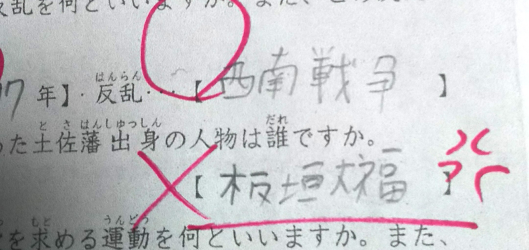 反乱を何といいますか。また、この
7年】・反乱…【 西南戦争 】
った土佐藩出身の人物は誰ですか。
【 板垣大福 】
を求める運動を何といいますか。また、